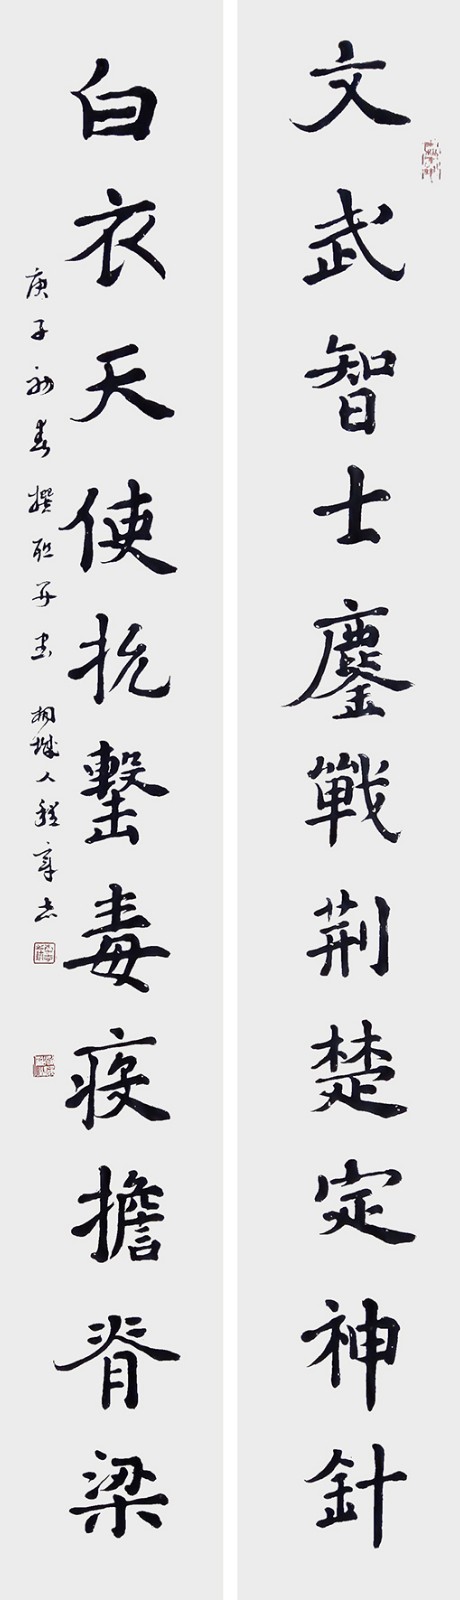 文武智士鏖戰荆楚定神針
白衣天使抗擊毒疫擔脊梁
庚子初春撰联并书 桐城人程章